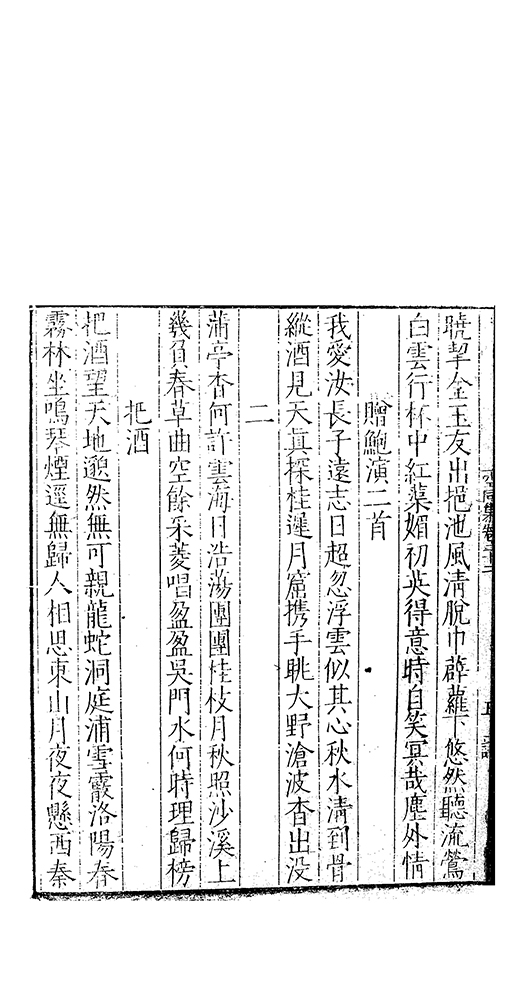 曉挈金玉友出挹池風清脫巾薜蘿下悠然聽流鶯
白雲行杯中紅蕖媚初英得意時自笑冥哉塵外情
贈鮑演二首
我愛汝長子遠志日超忽浮雲似其心秋水清到骨
縱酒見天真探桂遲月窟携手眺大野滄波杳出没
二
蒲亭杳何許雲海日浩蕩團團桂枝月秋照沙溪上
幾負春草曲空餘采菱唱盈盈吳門水何時理歸榜
把酒
把酒望天地邈然無可親龍蛇洞庭浦雪霰洛陽春
霧林坐鳴琴煙逕無歸人相思東山月夜夜懸西秦
空同集卷十二